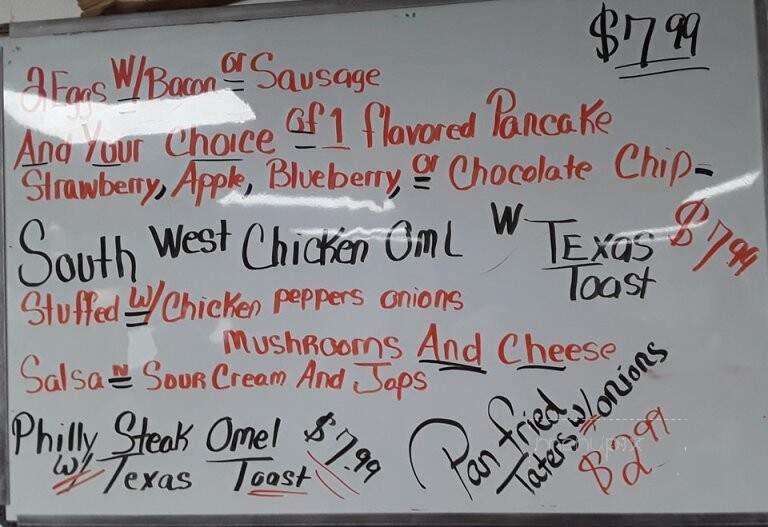 $7.99
2 Eggs W/Bacon or Sausage
And Your Choice of 1 flavored Pancake
Strawberry, Apple, Blueberry, or Chocolate Chip-
South West Chicken Oml W Texas Toast $7.99
Stuffed w/Chicken peppers onions
Mushrooms And Cheese
Salsa N Sour Cream And Japs
Philly Steak Omel $7.99
w/ Texas Toast
Pan fried
Taters w/onions
$2.99